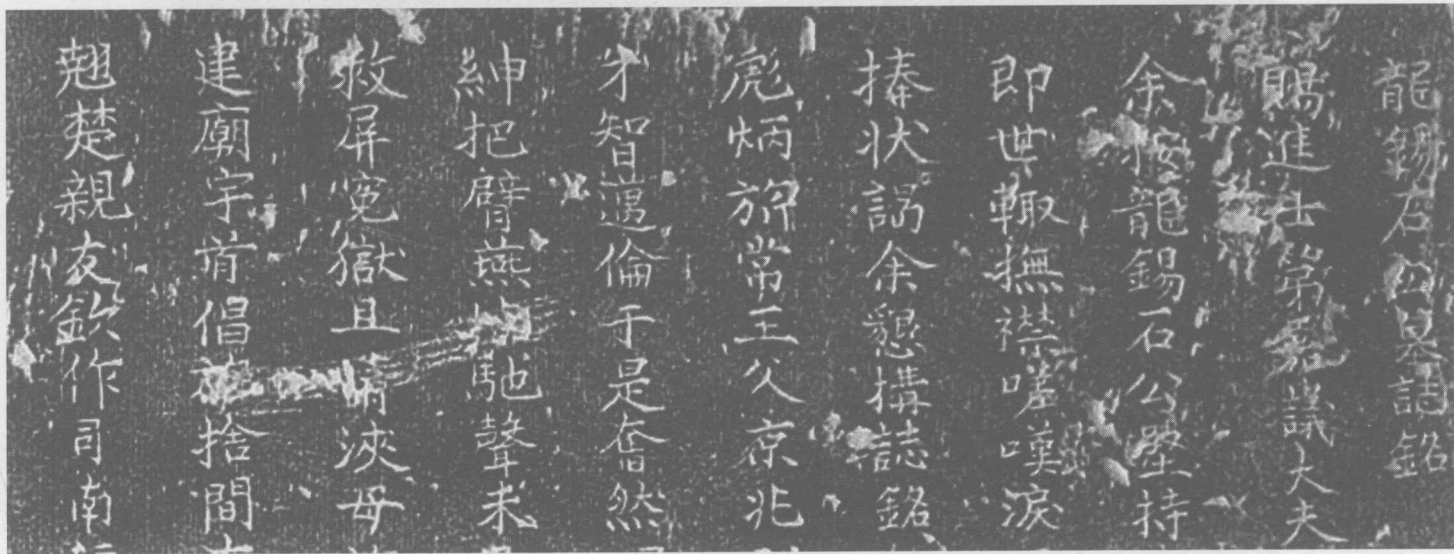 龍錫石公墓誌銘
賜進士第 議大夫
余 龍錫石公塋持
即世輙撫襟嗟嘆淚
捧狀謁余懇搆誌銘
彪炳旂常王父京兆
才智邁倫于是奮然
紳把臂燕 馳聲未
救屏寃獄且 浹母
建廟宇首倡 捨間
翹楚親友欽作司南